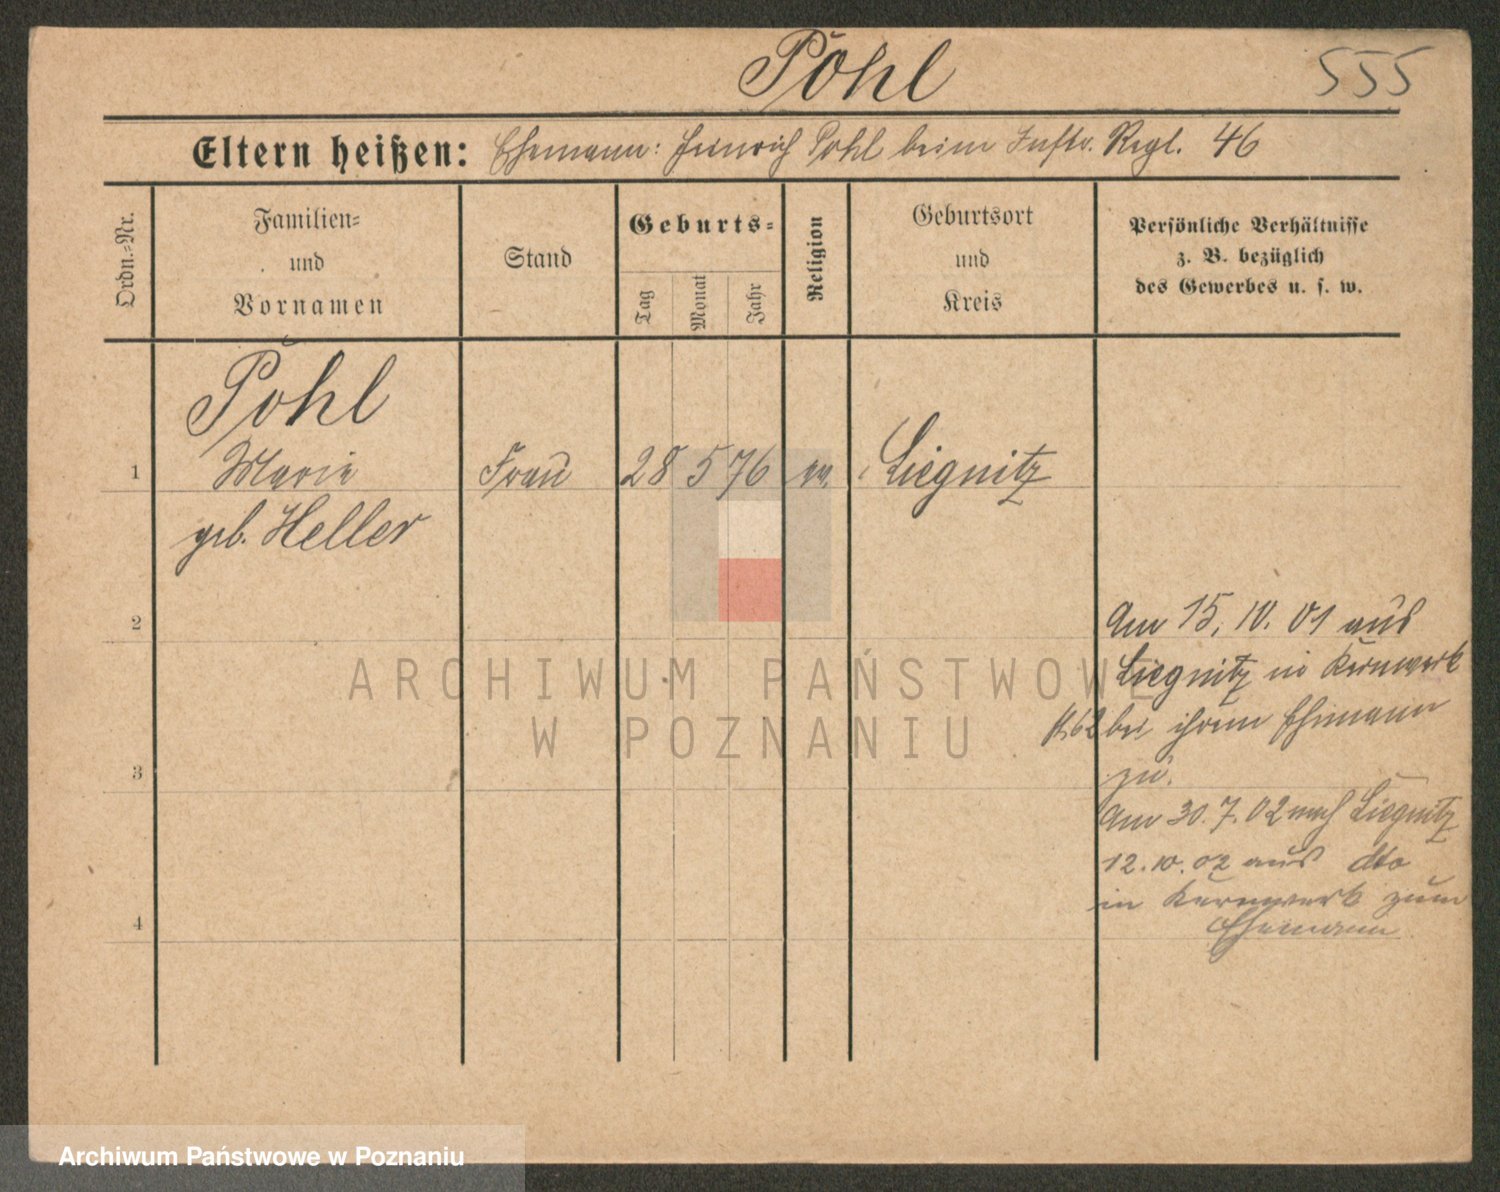 Pohl
555
Eltern heißen: Ehemann: Heinrich Pohl beim Inftr. Regt. 46
Ordn.-Nr.
Familien-
und
Vornamen
Stand
Geburts-
Tag
Monat
Jahr
Religion
Geburtsort
und
Kreis
Persönliche Verhältnisse
z. B. bezüglich
des Gewerbes u. s. w.
Pohl
1 Marie Frau 28 5 76 ev. Liegnitz
geb. Heller
2
Am 15. 10. 01 aus
Liegnitz in Kernwerk
bei ihrem Ehemann
zu.
3
Am 30. 7. 02 nach Liegnitz
12. 10. 02 aus dto
in Kernwerk zum
Ehemann
4
ARCHIWUM PAŃSTWOWE
W POZNANIU
Archiwum Państwowe w Poznaniu